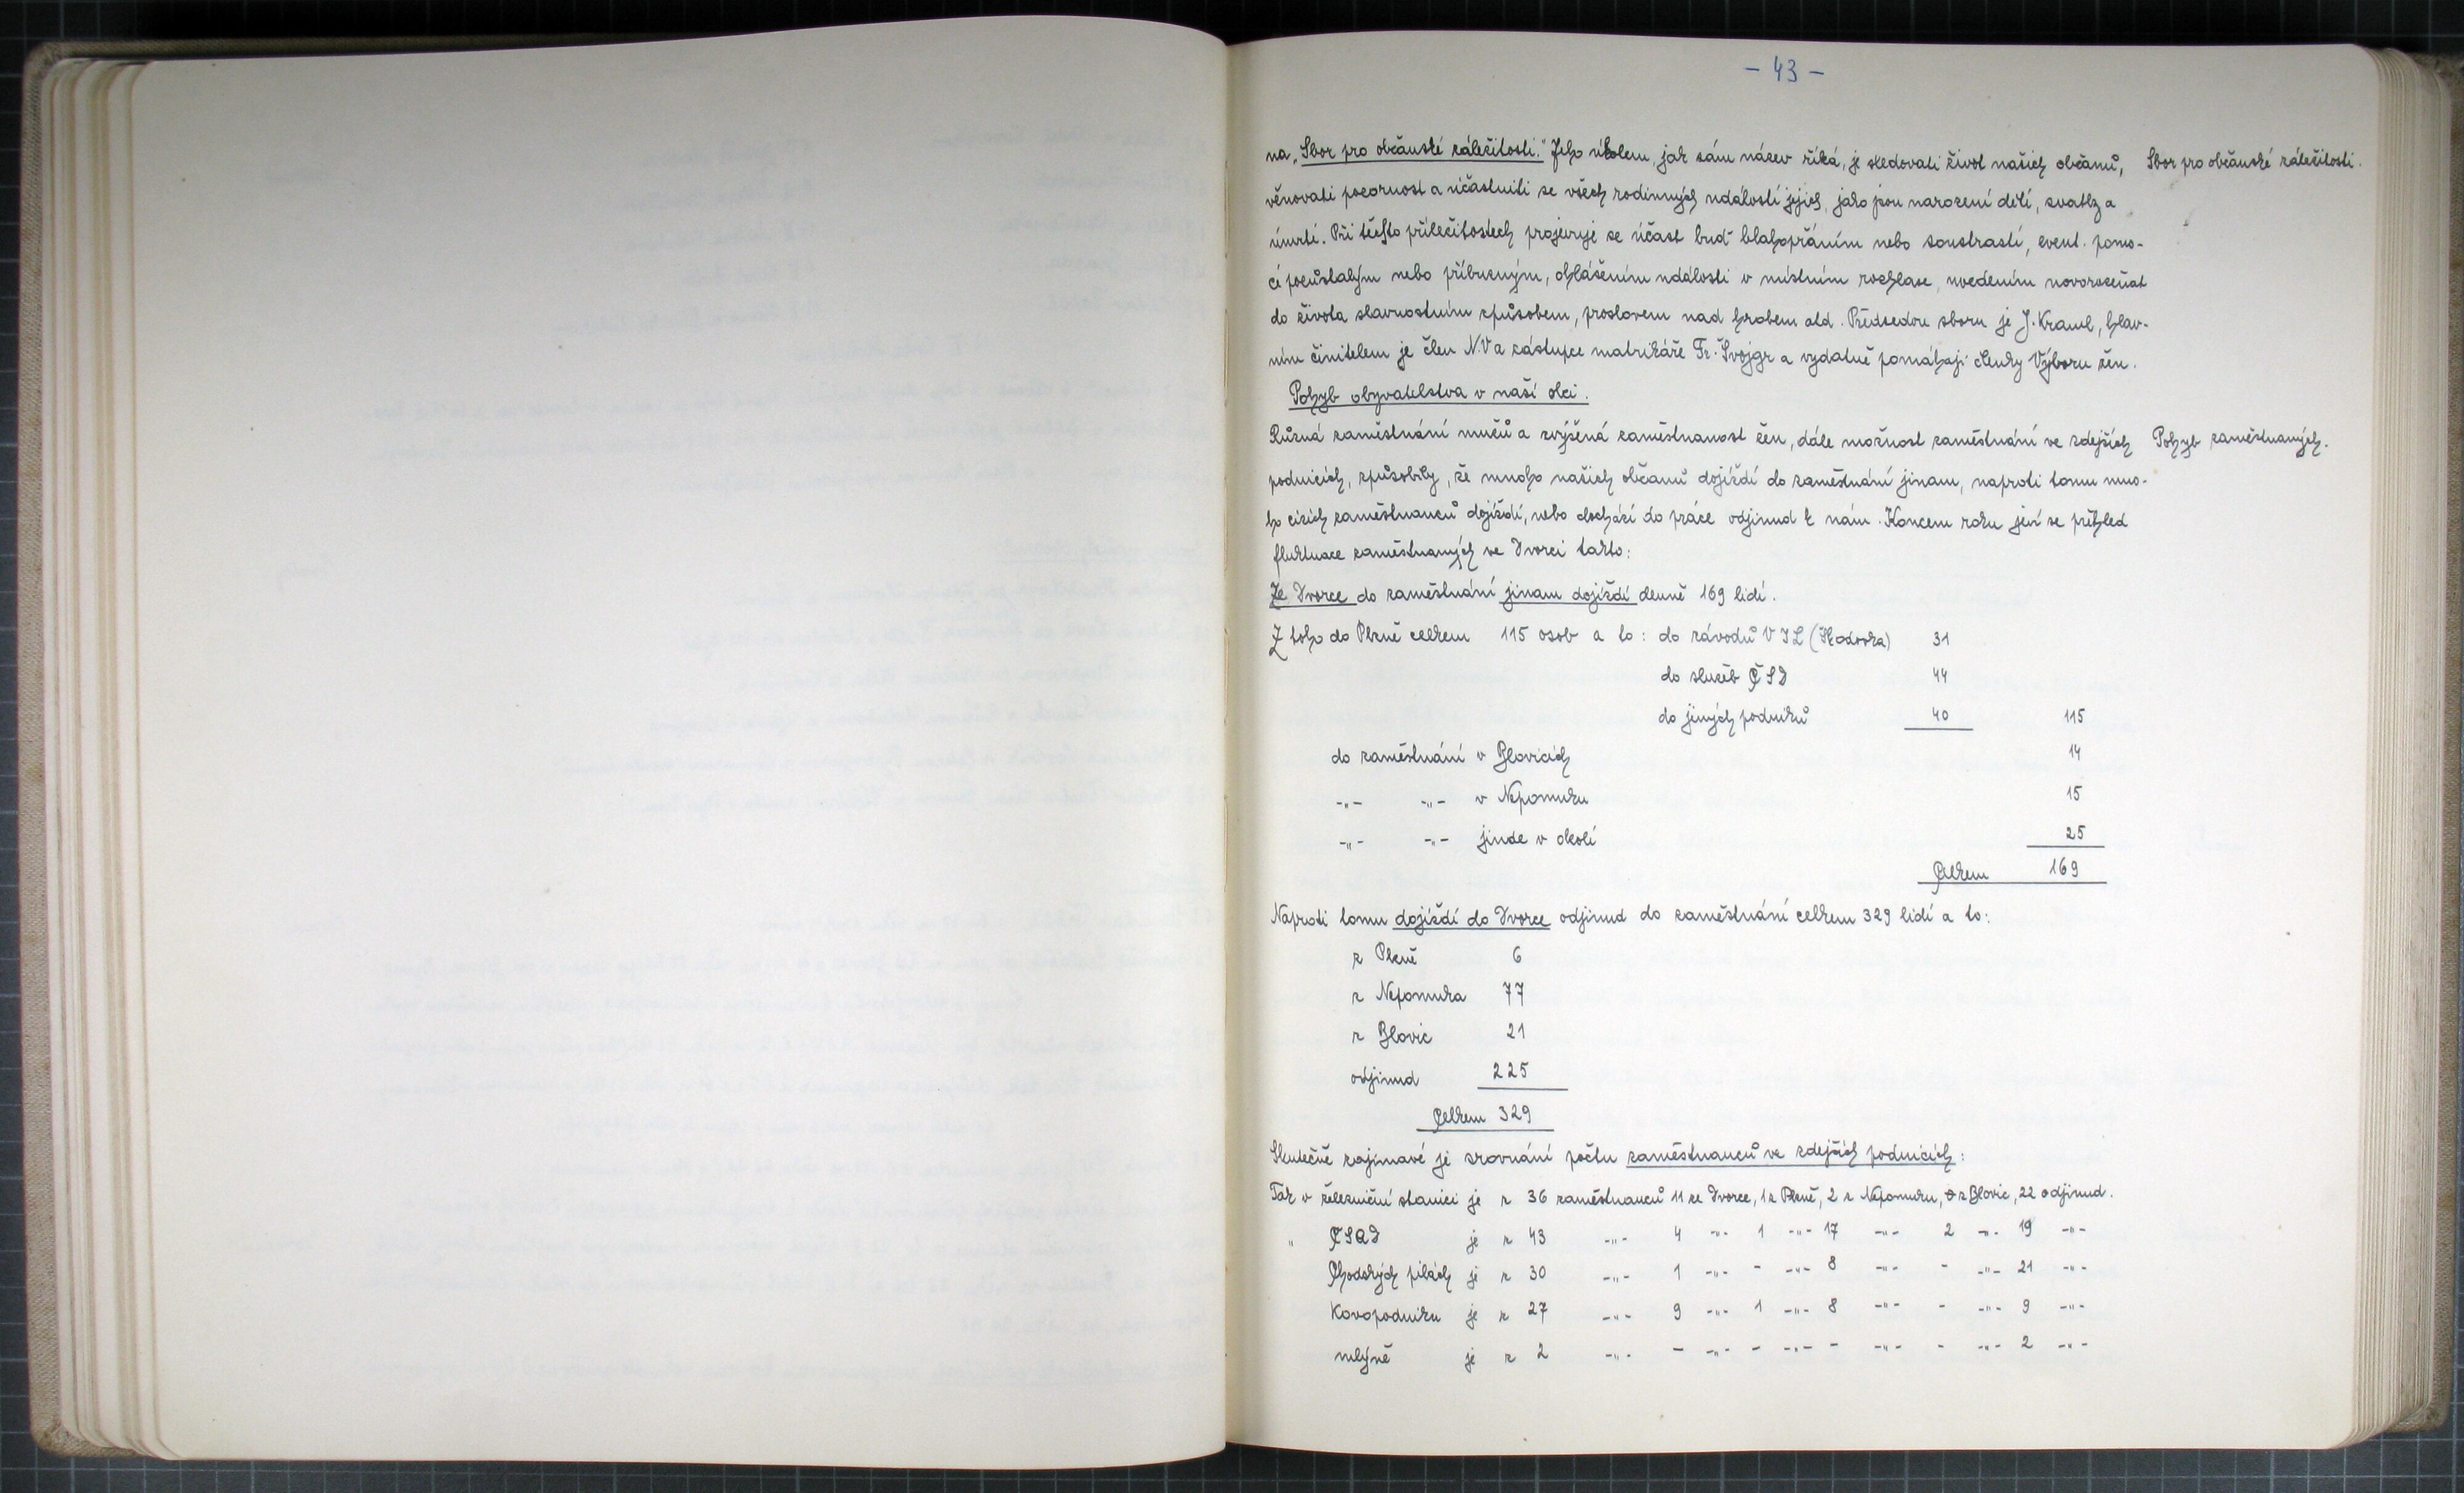 - 43 -
na „Sbor pro občanské záležitosti.“ Jeho úkolem, jak sám název říká, je sledovati život našich občanů,
Sbor pro občanské záležitosti.
věnovati pozornost a účastniti se všech rodinných událostí jejich, jako jsou narození dětí, svatby a
úmrtí. Při těchto příležitostech projevuje se účast buď blahopřáním nebo soustrastí, event. pomo-
cí pozůstalým nebo příbuzným, ohlášením události v místním rozhlase, uvedením novorozeňat
do života slavnostním způsobem, proslovem nad hrobem atd. Předsedou sboru je J. Kraml, hlav-
ním činitelem je člen N.V a zástupce matrikáře Fr. Švojgr a vydatně pomáhají členky Výboru žen.
Pohyb obyvatelstva v naší obci.
Různá zaměstnání mužů a zvýšená zaměstnanost žen, dále možnost zaměstnání ve zdejších
Pohyb zaměstnaných.
podnicích, způsobily, že mnoho našich občanů dojíždí do zaměstnání jinam, naproti tomu mno-
ho cizích zaměstnanců dojíždí, nebo dochází do práce odjinud k nám. Koncem roku jeví se přehled
fluktuace zaměstnaných ve Dvorci takto:
Ze Dvorce do zaměstnání jinam dojíždí denně 169 lidí.
Z toho do Plzně celkem 115 osob a to: do závodů V I L (Škodovka) 31
do služeb ČSD 44
do jiných podniků 40 115
do zaměstnání v Blovicích 14
-„- -„- v Nepomuku 15
-„- -„- jinde v okolí 25
Celkem 169
Naproti tomu dojíždí do Dvorce odjinud do zaměstnání celkem 329 lidí a to:
z Plzně 6
z Nepomuka 77
z Blovic 21
odjinud 225
Celkem 329
Skutečně zajímavé je srovnání počtu zaměstnanců ve zdejších podnicích:
Tak v železniční stanici je z 36 zaměstnanců 11 ze Dvorce, 1 z Plzně, 2 z Nepomuku, 0 z Blovic, 22 odjinud.
„ ČSAD je z 43 -„- 4 -„- 1 -„- 17 -„- 2 -„- 19 -„-
Chodských pilách je z 30 -„- 1 -„- - -„- 8 -„- - -„- 21 -„-
Kovopodniku je z 27 -„- 9 -„- 1 -„- 8 -„- - -„- 9 -„-
mlýně je z 2 -„- - -„- - -„- - -„- - -„- 2 -„-